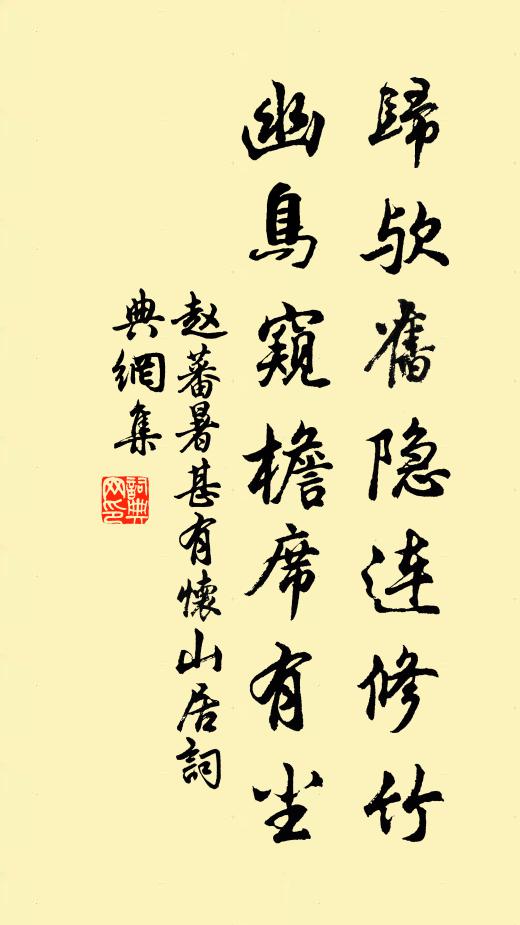 歸欤舊隐連修竹
幽鳥窺檐席有尘
赵蕃暑甚有懷山居詞
典網集
詞典网印